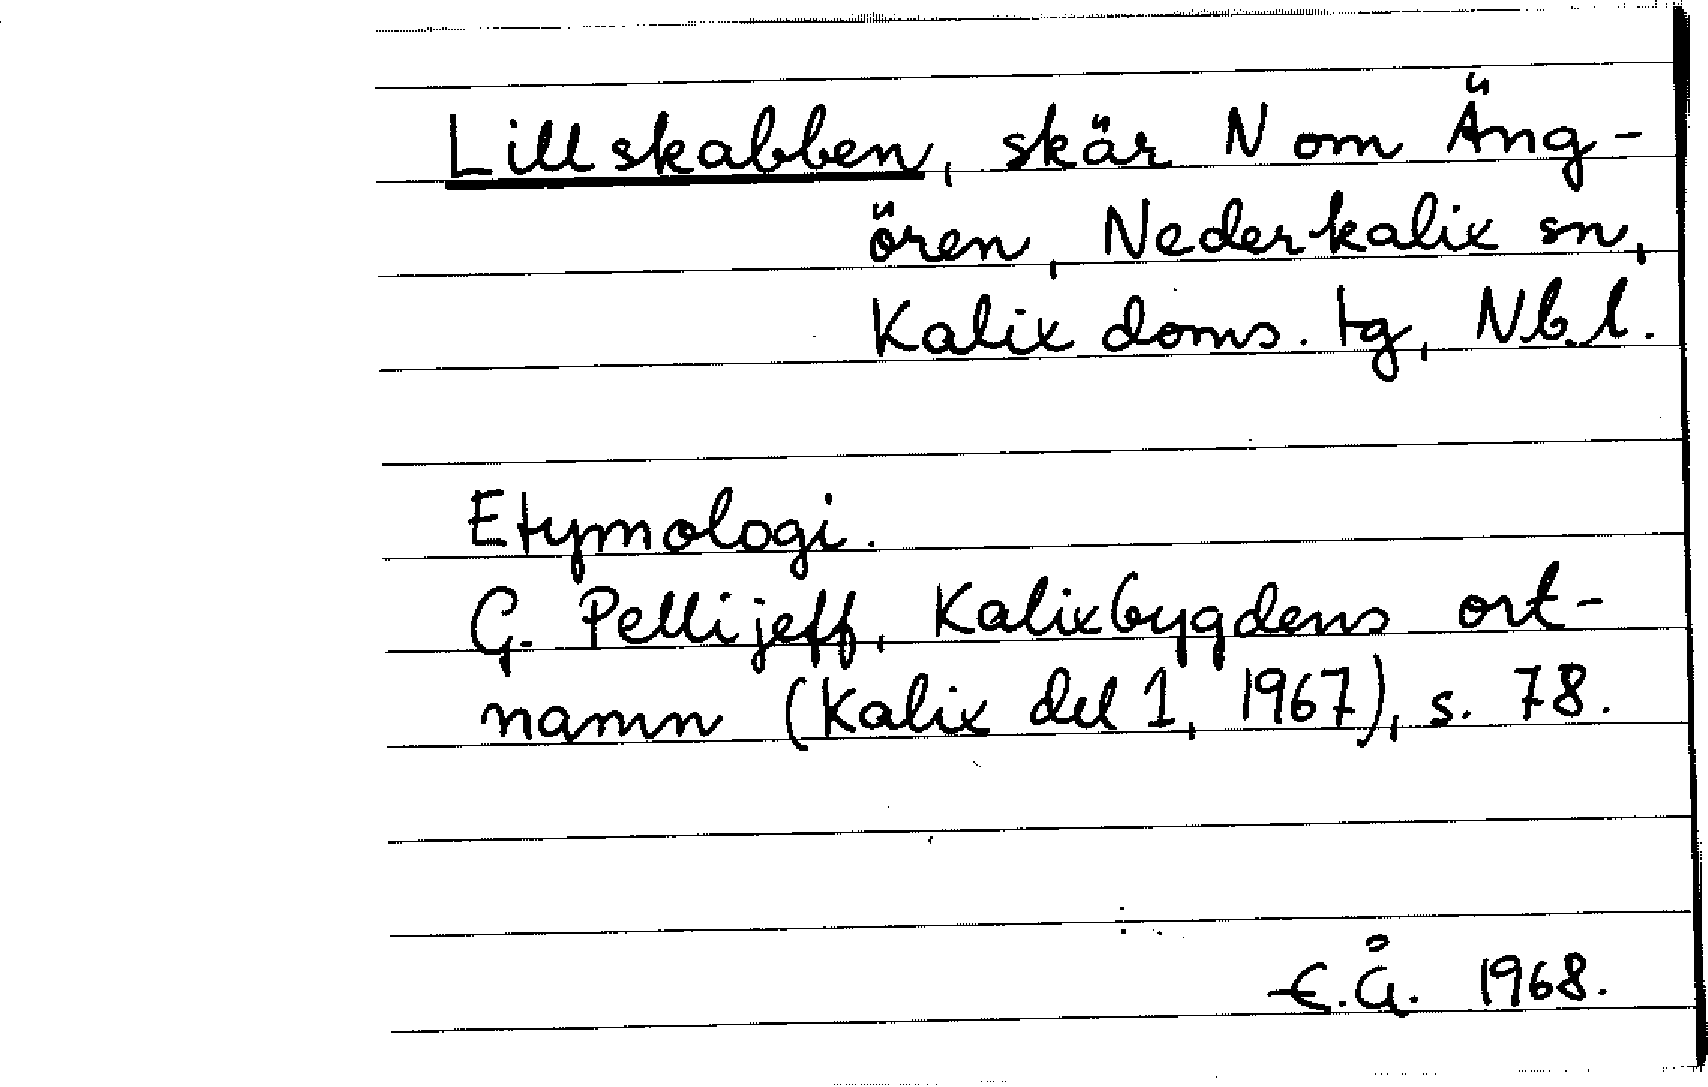 Lillskabben, skär N om Äng-
ören, Nederkalix sn,
Kalix doms. tg, Nb.l.
Etymologi.
G. Pellijeff, Kalixbygdens ort-
namn (Kalix del 1, 1967), s. 78.
E.Å. 1968.